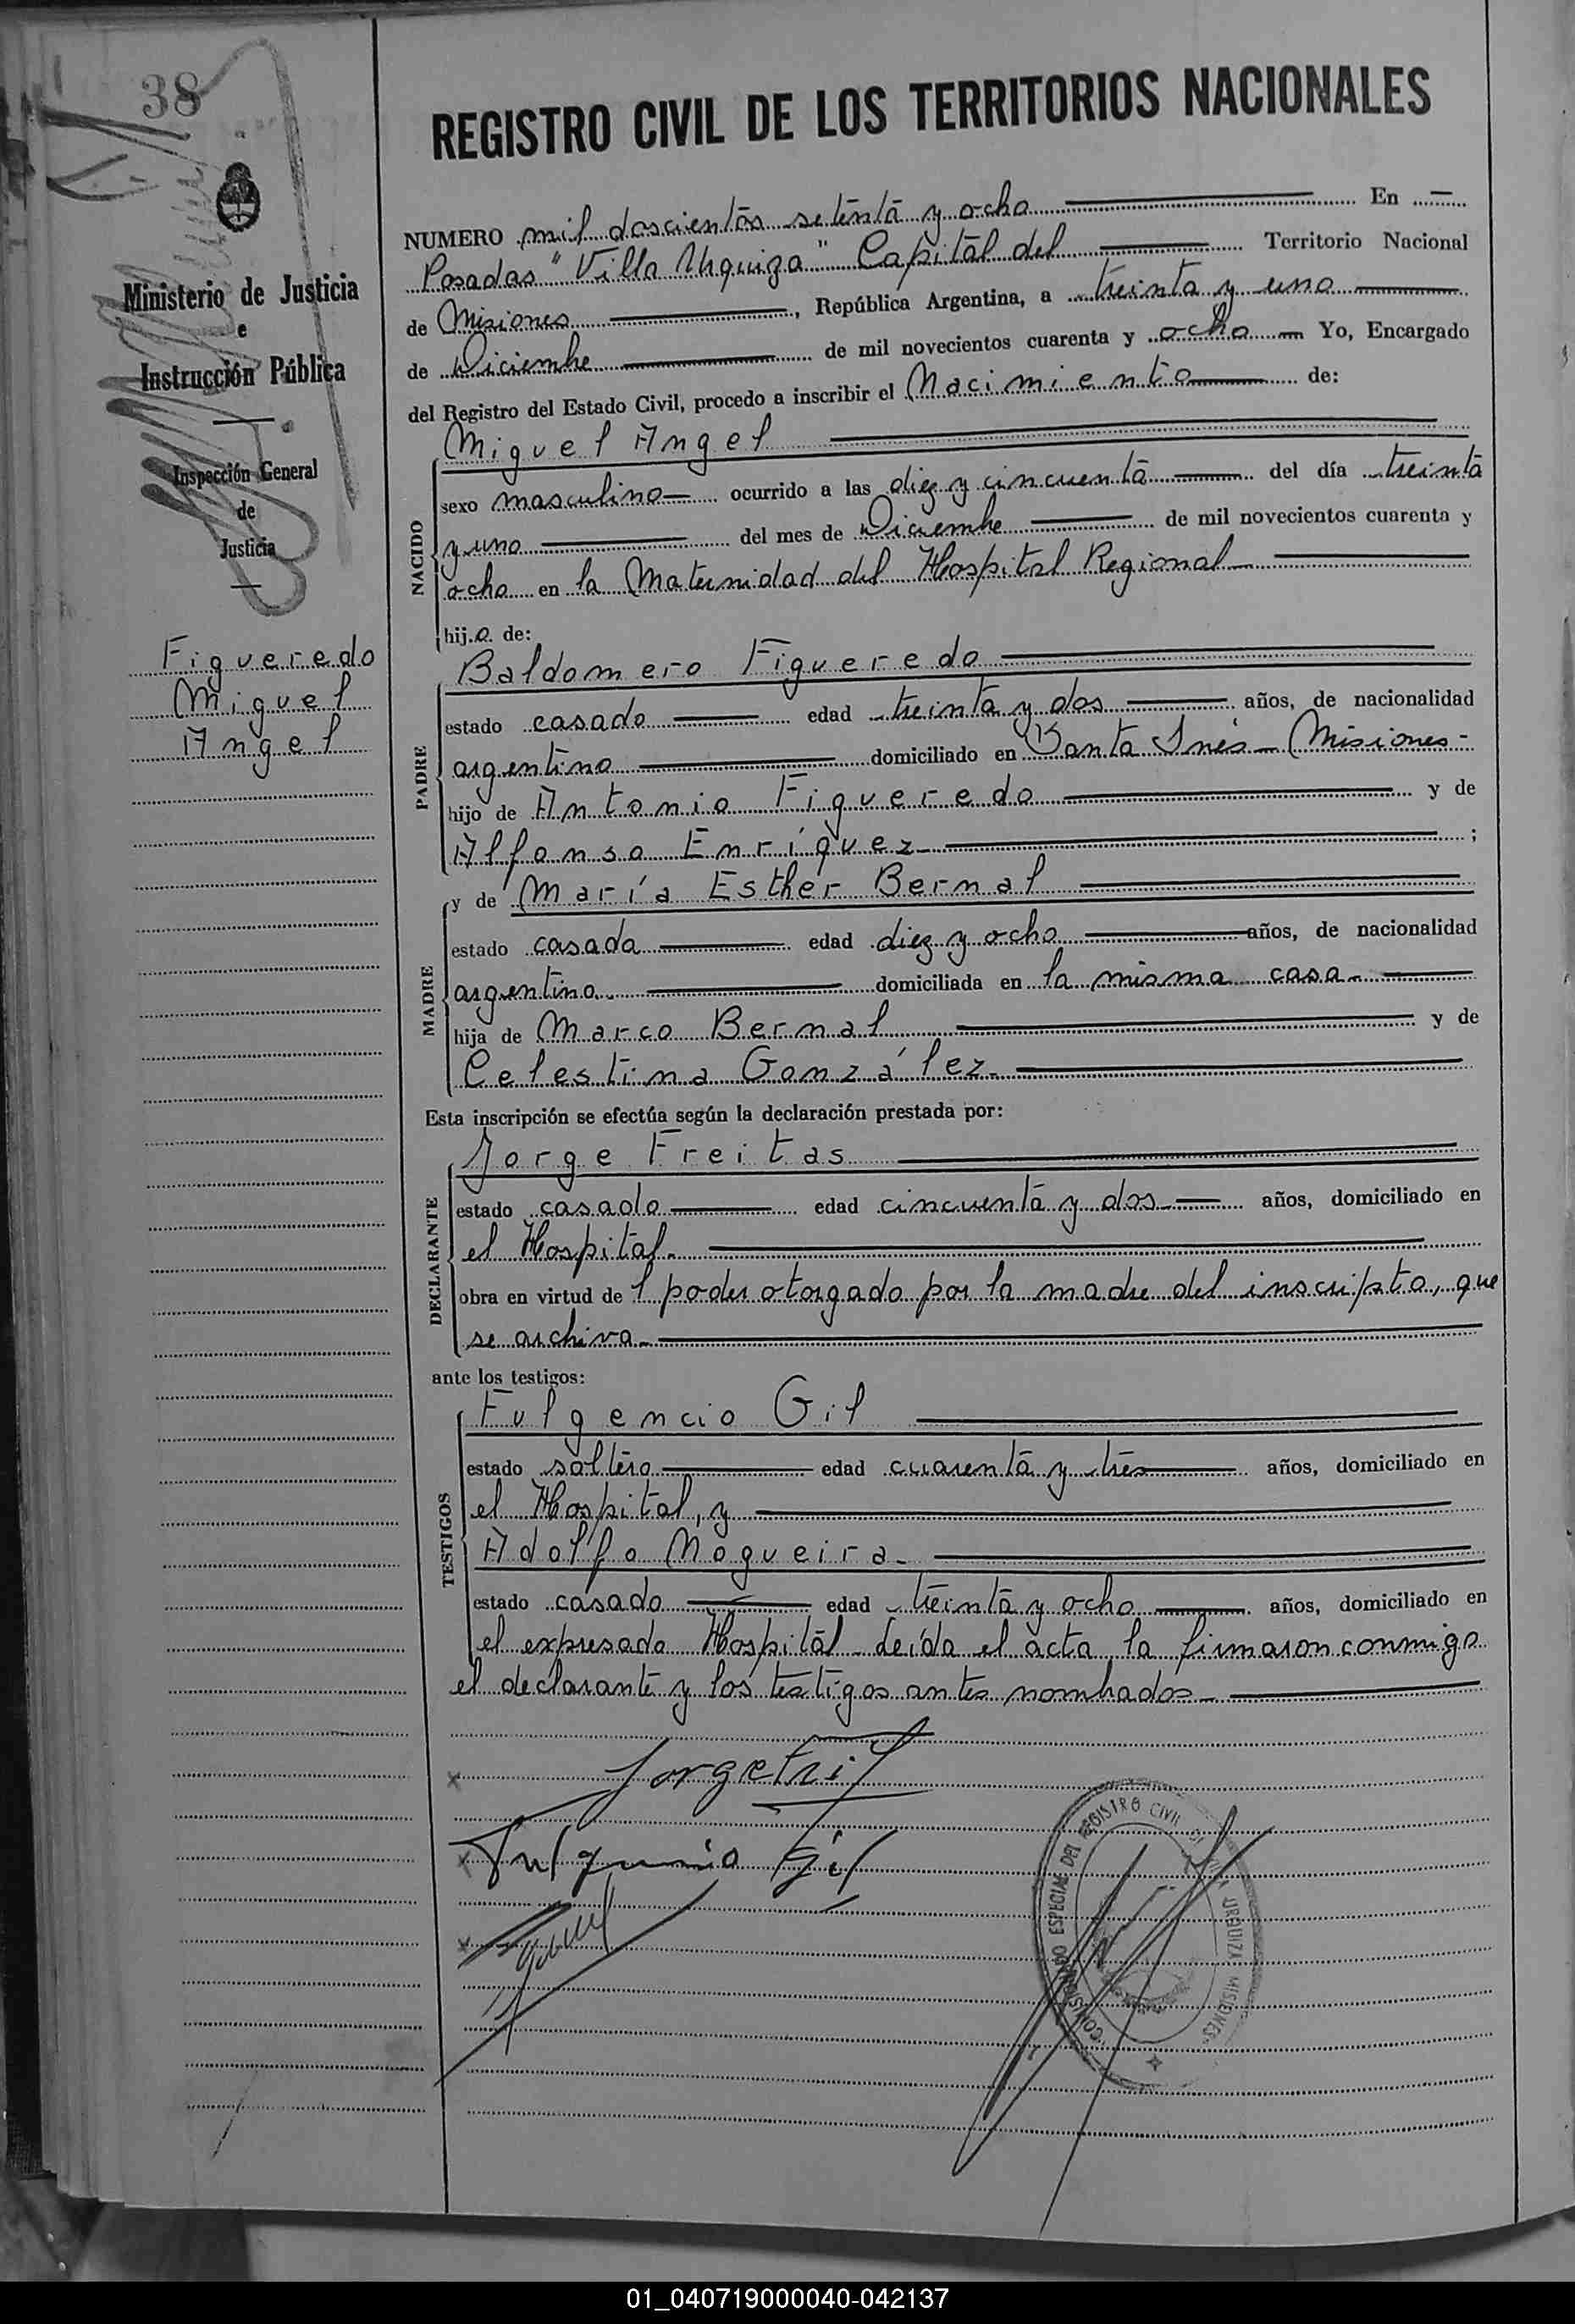 38
REGISTRO CIVIL DE LOS TERRITORIOS NACIONALES
Ministerio de Justicia
e
Instrucción Pública
Inspección General
de
Justicia
Figueredo
Miguel
Angel
NUMERO mil doscientos setenta y ocho En
Posadas "Villa Urquiza" Capital del Territorio Nacional
de Misiones, República Argentina, a treinta y uno
de Diciembre de mil novecientos cuarenta y ocho Yo, Encargado
del Registro del Estado Civil, procedo a inscribir el Nacimiento de:
NACIDO
Miguel Angel
sexo masculino ocurrido a las diez y cincuenta del día treinta
y uno del mes de Diciembre de mil novecientos cuarenta y
ocho en la Maternidad del Hospital Regional
hij.o de:
PADRE
Baldomero Figueredo
estado casado edad treinta y dos años, de nacionalidad
argentino domiciliado en Santa Inés - Misiones -
hijo de Antonio Figueredo y de
Alfonsa Enríquez ;
MADRE
y de María Esther Bernal
estado casada edad diez y ocho años, de nacionalidad
argentina domiciliada en la misma casa.
hija de Marco Bernal y de
Celestina González.
Esta inscripción se efectúa según la declaración prestada por:
DECLARANTE
Jorge Freitas
estado casado edad cincuenta y dos años, domiciliado en
el Hospital.
obra en virtud de l poder otorgado por la madre del inscripto, que
se archiva.
ante los testigos:
TESTIGOS
Fulgencio Gil
estado soltero edad cuarenta y tres años, domiciliado en
el Hospital, y
Adolfo Nogueira.
estado casado edad treinta y ocho años, domiciliado en
el expresado Hospital. Leída el acta, la firmaron conmigo
el declarante y los testigos antes nombrados.
Fulgencio Gil
REGISTRO CIVIL
URQUIZA MISIONES
01_040719000040-042137